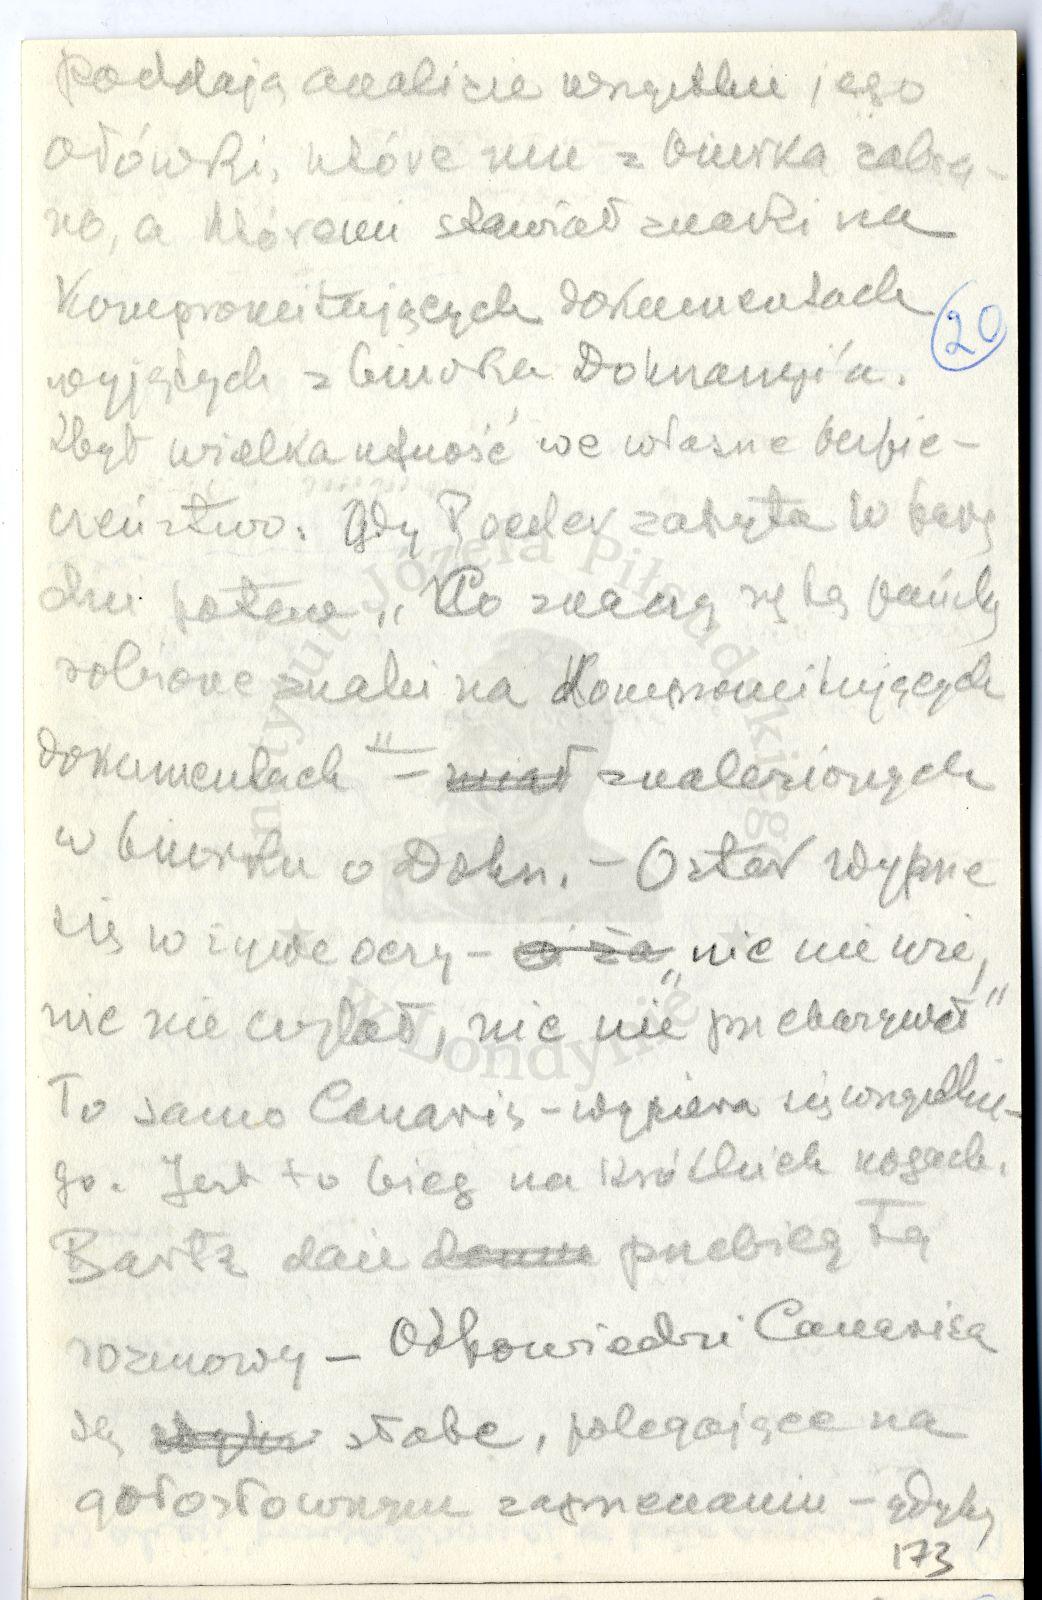 poddają analizie wszystkie jego
ołówki, które mu z biurka zabra-
no, a któremi stawiał znaki na
kompromitujących dokumentach
20
wyjętych z biurka Dohnanyi'a.
Zbyt wielka ufność we własne bezpie-
czeństwo. Gdy Roeder zapyta w parę
dni potem, "Co znaczą są tą
robione znaki na kompromitujących
dokumentach" - miał znalezionych
w biurku o Dohn. - Oster wyprze
się w żywe oczy - "nic nie wie,
nic nie czytał, nic nie"
To samo Canaris - wypiera się wszystkie-
go. Jest to bieg na krótkich nogach.
Bartz daje przebieg tą
rozmowy - Odpowiedzi Canarisa
są słabe, polegające na
gołosłownym zaprzeczaniu - gdyby
173
Instytut Józefa Piłsudskiego
w Londynie